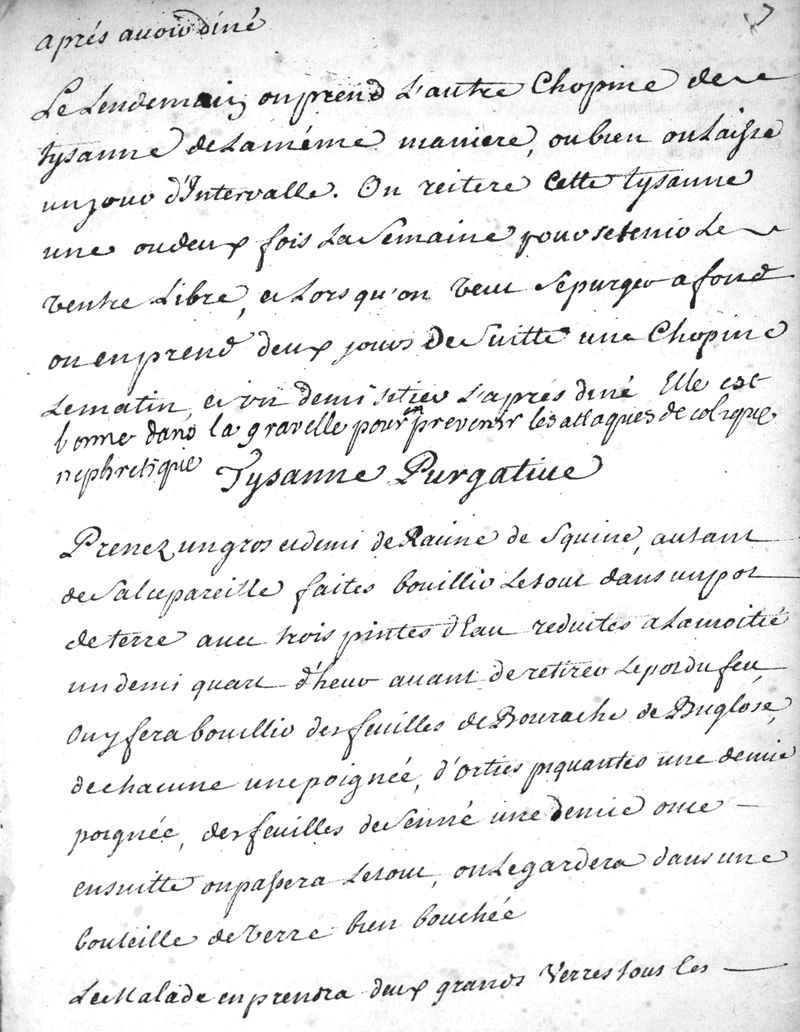 7
aprés avoir diné
Le Lendemain on prend L'autre Chopine de
tysanne de La méme maniere, ou bien on Laisse
un jour d'Intervalle. On reitere cette tysanne
une ou deux fois La Semaine pour se tenir Le
ventre Libre, et Lorsqu'on veut Se purger a fond
on en prend deux jours De Suitte une Chopine
Le matin, et un demi setier L'aprés diné Elle est
bonne dans la gravelle pour en prevenir les attaques de colique
nephretique
Tysanne Purgative
Prenez un gros et demi de Racine de Squine, autant
de Salcepareille faites bouillir Le tout dans un pot
de terre avec trois pintes d'Eau reduites a La moitié
un demi quart d'heur avant de retirer Le pot du feu
On y fera bouillir des feuilles de Bourache de Buglose,
de chacune une poignée, d'Orties piquantes une demie
poignée, des feuilles de Senné une demie once
ensuitte on passera Le tout, on Le gardera dans une
bouteille de verre bien bouchée
Le Malade en prendra deux grands Verres tous les